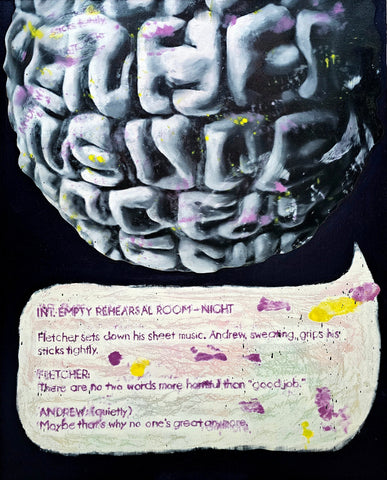 sticks tightly
INT. EMPTY REHEARSAL ROOM – NIGHT
Fletcher sets down his sheet music. Andrew, sweating, grips his
sticks tightly.
FLETCHER:
There are no two words more harmful than "good job."
ANDREW: (quietly)
Maybe that's why no one's great anymore.